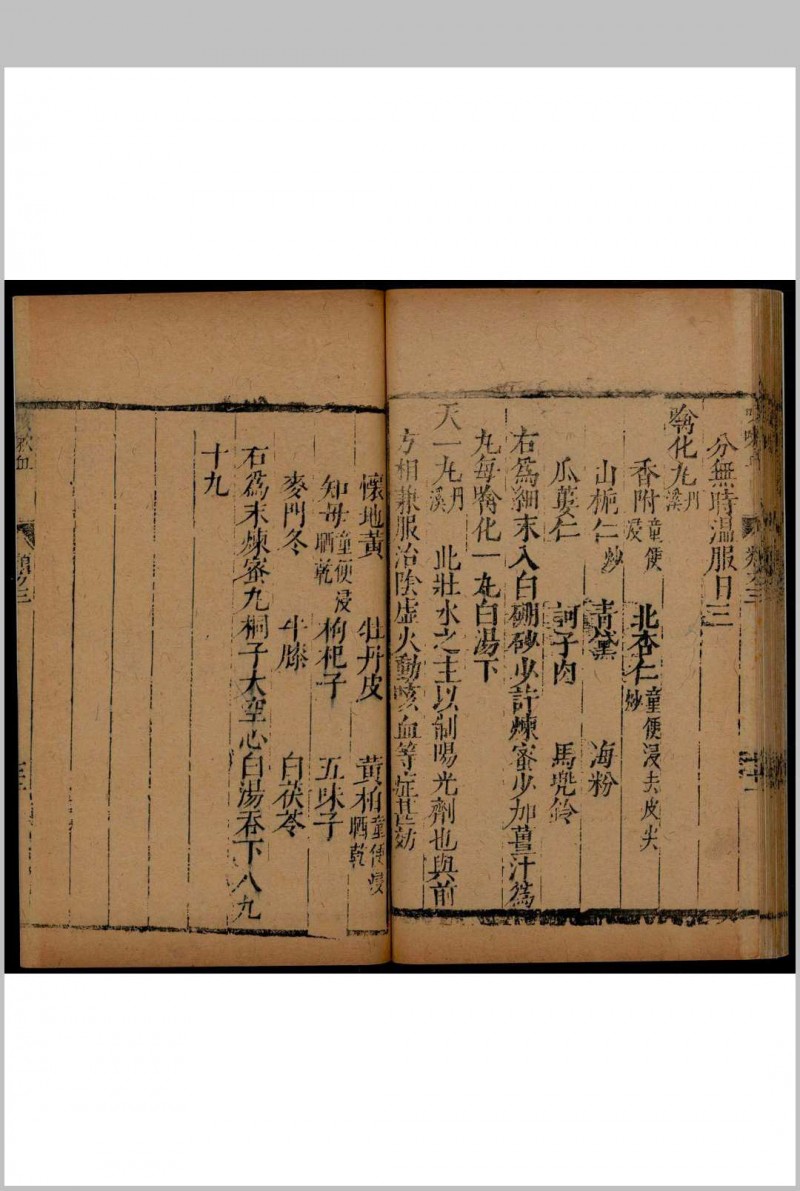 分無時溫服日三
噙化丸丹溪
香附童便浸 北杏仁童便浸去皮尖炒
山梔仁炒 青黛 海粉
瓜蔞仁 訶子肉 馬兜鈴
右為細末入白硼砂少許煉蜜少加薑汁為
丸每噙化一丸白湯下
天一丸丹溪 此壯水之主以制陽光劑也與前
方相兼服治陰虛火動咳血等症甚効
懷地黃 牡丹皮 黃柏童便浸晒乾
知母童便浸晒乾 枸杞子 五味子
麥門冬 牛膝 白茯苓
右為末煉蜜丸桐子大空心白湯吞下八九
十丸